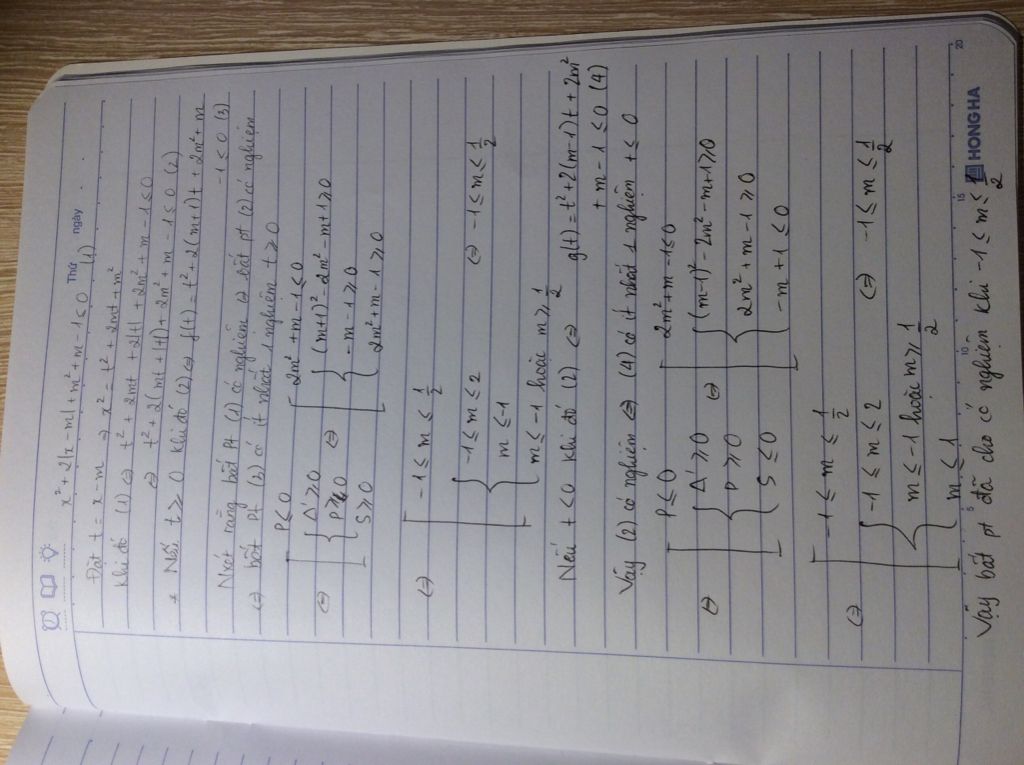 Thứ ngày
x² + 2|x - m| + m² + m - 1 ≤ 0 (1)
Đặt t = x - m ⇒ x² = t² + 2mt + m²
Khi đó (1) ⇔ t² + 2mt + 2|t| + 2m² + m - 1 ≤ 0
⇔ t² + 2(mt + |t|) + 2m² + m - 1 ≤ 0 (2)
* Nếu t ≥ 0 khi đó (2) ⇔ f(t) = t² + 2(m+1)t + 2m² + m
- 1 ≤ 0 (3)
Nxét rằng bất pt (1) có nghiệm ⇔ bất pt (2) có nghiệm
⇔ bất pt (3) có ít nhất 1 nghiệm t ≥ 0
P ≤ 0 2m² + m - 1 ≤ 0
⇔ Δ' ≥ 0 ⇔ (m+1)² - 2m² - m + 1 ≥ 0
P ≥ 0 - m - 1 ≥ 0
S ≥ 0 2m² + m - 1 ≥ 0
⇔ -1 ≤ m ≤ 1/2
-1 ≤ m ≤ 2
m ≤ -1 ⇔ -1 ≤ m ≤ 1/2
m ≤ -1 hoặc m ≥ 1/2
Nếu t < 0 khi đó (2) ⇔ g(t) = t² + 2(m-1)t + 2m²
+ m - 1 ≤ 0 (4)
Vậy (2) có nghiệm ⇔ (4) có ít nhất 1 nghiệm t ≤ 0
P ≤ 0 2m² + m - 1 ≤ 0
⇔ Δ' ≥ 0 ⇔ (m-1)² - 2m² - m + 1 ≥ 0
P ≥ 0 2m² + m - 1 ≥ 0
S ≤ 0 - m + 1 ≤ 0
⇔ -1 ≤ m ≤ 1/2
-1 ≤ m ≤ 2 ⇔ -1 ≤ m ≤ 1/2
m ≤ -1 hoặc m ≥ 1/2
m ≤ 1
Vậy bất pt đã cho có nghiệm khi -1 ≤ m ≤ 1/2
5 10 15 20
HONG HA